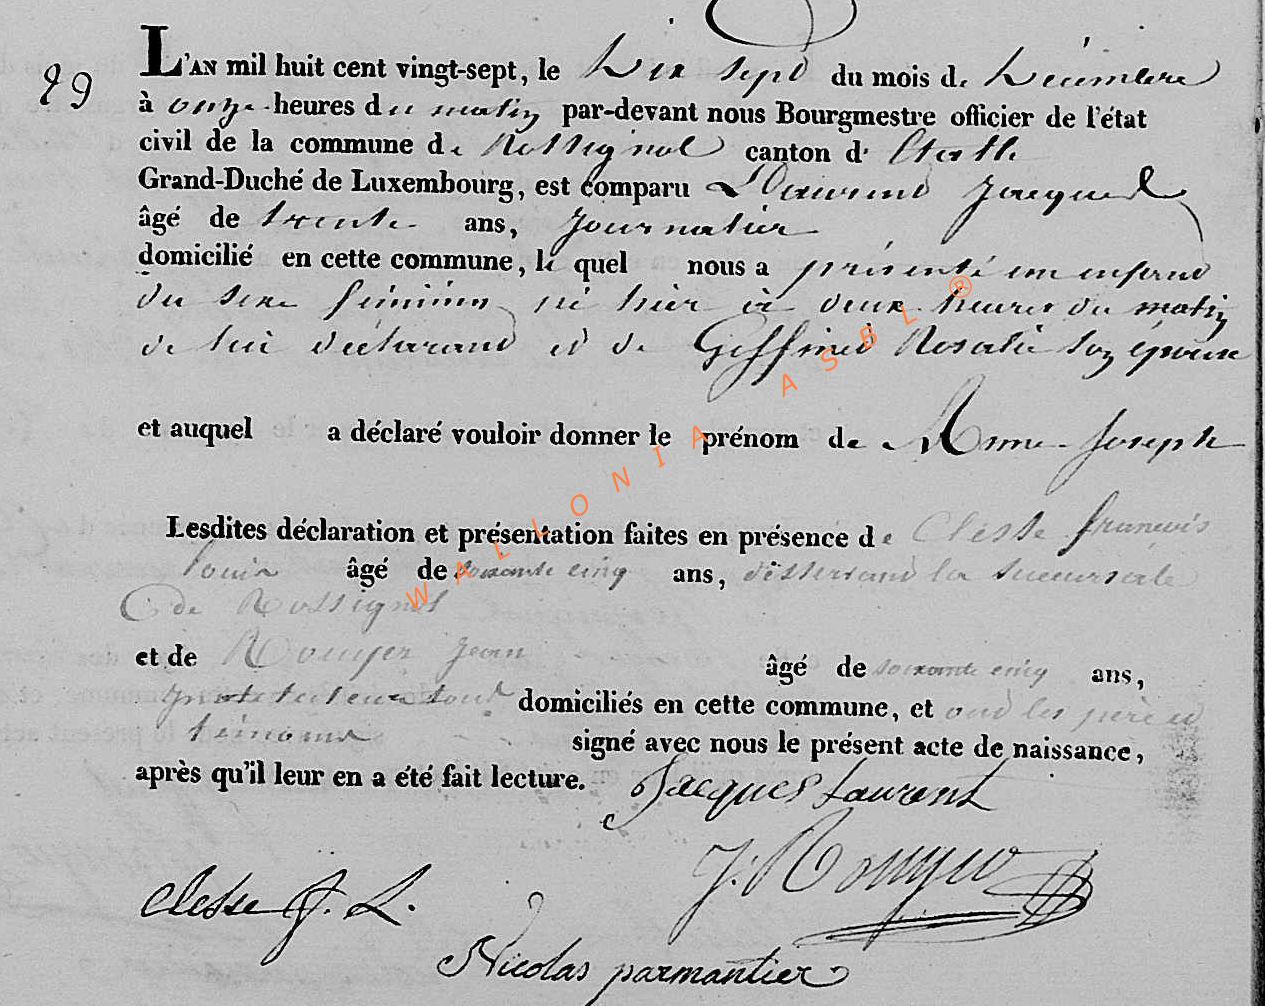 29
L'AN mil huit cent vingt-sept, le Dix sept du mois de Décembre
à onze heures du matin par-devant nous Bourgmestre officier de l'état
civil de la commune de Rossignol canton d' Etalle
Grand-Duché de Luxembourg, est comparu Laurent Jacques
âgé de trente ans, Journalier
domicilié en cette commune, le quel nous a présenté un enfant
du sexe féminin né hier à deux heures du matin
de lui déclarant et de Goffinet Rosalie son épouse
et auquel a déclaré vouloir donner le prénom de Anne Joseph
Lesdites déclaration et présentation faites en présence de Clesse francois
louis âgé de soixante cinq ans, desservant la succursale
de Rossignol
et de Ronger Jean âgé de soixante cinq ans,
tous domiciliés en cette commune, et ont les père et
témoins signé avec nous le présent acte de naissance,
après qu'il leur en a été fait lecture. Jacques Laurent
J:
Clesse f. L.
Nicolas parmantier
WALLONIA ASBL ®